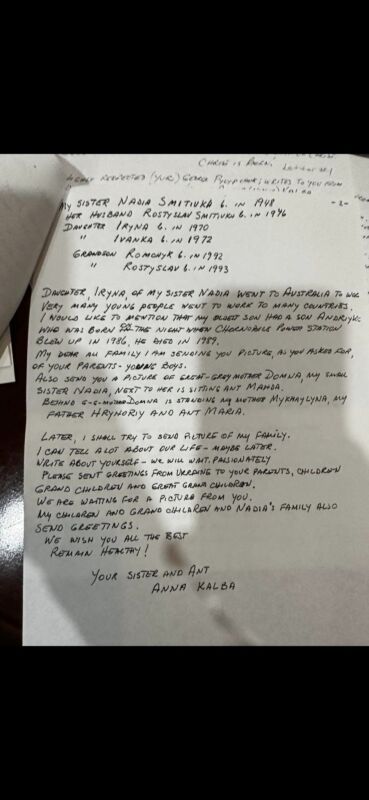 Christ is Born!
Letter #1
Highly Respected (Yur) George Pylypchuk; writes to you from
- 2 -
My sister Nadia Smitiukh b. in 1948
Her husband Rostyslav Smitiukh b. in 1946
Daughter Iryna b. in 1970
" Ivanka b. in 1972
Grandson Romchyk b. in 1992
" Rostyslav b. in 1993
Daughter, Iryna, of my sister Nadia went to Australia to
Very many young people went to work to many countries.
I would like to mention that my oldest son had a son Andriyko
who was born on the night when Chornobyle Power Station
blew up in 1986, he died in 1989.
My dear all family I am sending you picture, as you asked for,
of your parents - young boys.
Also send you a picture of great-grey mother Domna, my small
sister Nadia, next to her is sitting Ant Manda.
Behind G-G-mother Domna is standing my mother Mykhaylyna, my
father Hrynoriy and Ant Maria.
Later, I shall try to send picture of my family.
I can tell a lot about our life - maybe later.
Write about yourself - we will wait. Passionately
Please send greetings from Ukraine to your parents, children
Grand children and great grand children.
We are waiting for a picture from you.
My children and grand children and Nadia's family also
send greetings.
We wish you all the best
Remain healthy!
Your sister and Ant
Anna Kalba